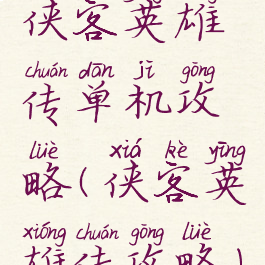 侠客英雄
chuán dān jī gōng
传单机攻
lüè xiá kè yīng
略(侠客英
xióng chuán gōng lüè
雄传攻略)